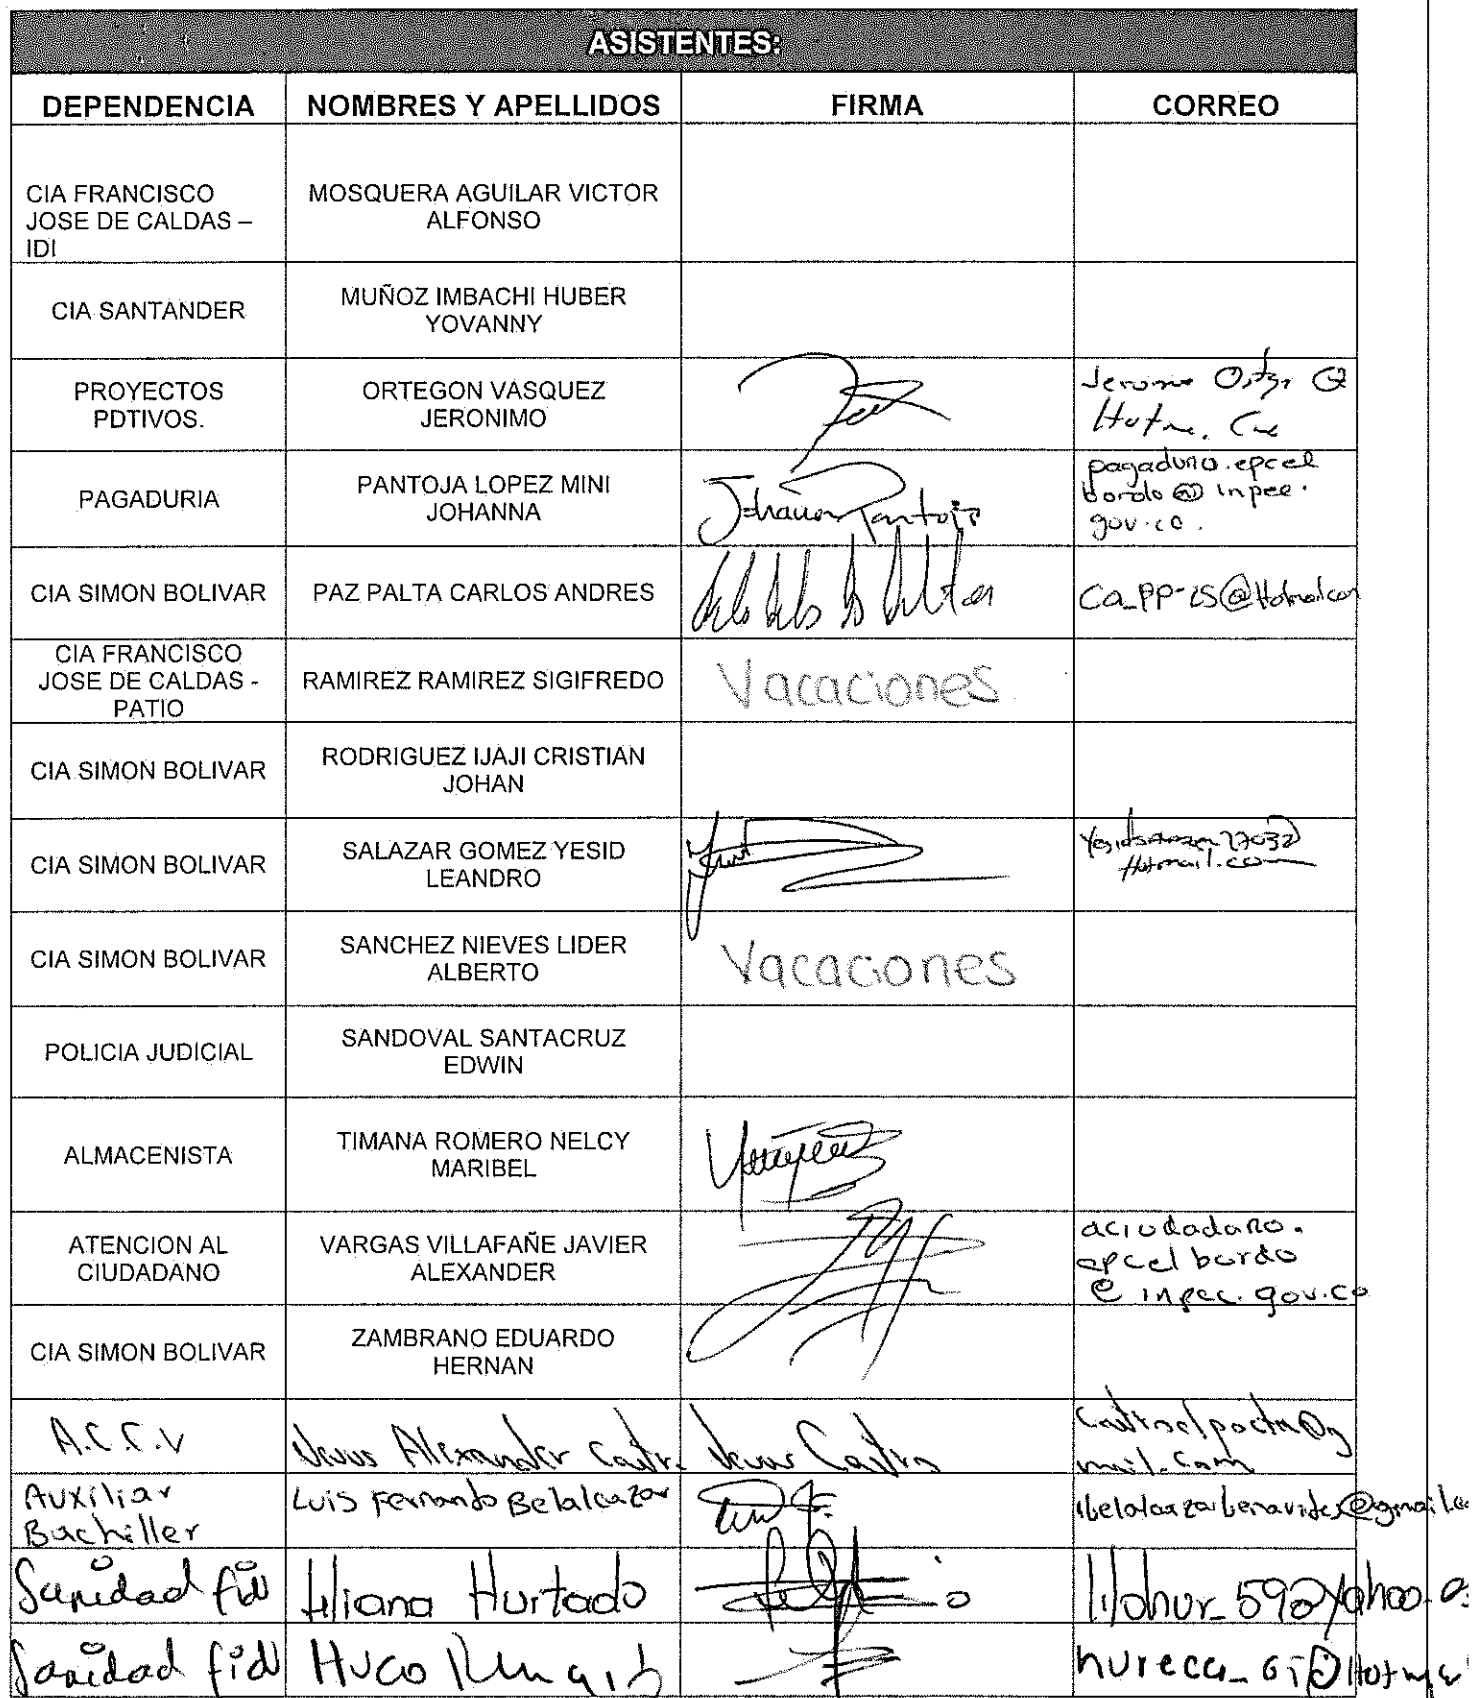 ASISTENTES:
DEPENDENCIA NOMBRES Y APELLIDOS FIRMA CORREO
CIA FRANCISCO JOSE DE CALDAS – IDI
MOSQUERA AGUILAR VICTOR ALFONSO
CIA SANTANDER
MUÑOZ IMBACHI HUBER YOVANNY
PROYECTOS PDTIVOS.
ORTEGON VASQUEZ JERONIMO
PAGADURIA
PANTOJA LOPEZ MINI JOHANNA
Johanna Pantoja
pagaduria.epcel
bordo@inpec.
gov.co.
CIA SIMON BOLIVAR
PAZ PALTA CARLOS ANDRES
CIA FRANCISCO JOSE DE CALDAS - PATIO
RAMIREZ RAMIREZ SIGIFREDO
Vacaciones
CIA SIMON BOLIVAR
RODRIGUEZ IJAJI CRISTIAN JOHAN
CIA SIMON BOLIVAR
SALAZAR GOMEZ YESID LEANDRO
Hotmail.com
CIA SIMON BOLIVAR
SANCHEZ NIEVES LIDER ALBERTO
Vacaciones
POLICIA JUDICIAL
SANDOVAL SANTACRUZ EDWIN
ALMACENISTA
TIMANA ROMERO NELCY MARIBEL
ATENCION AL CIUDADANO
VARGAS VILLAFAÑE JAVIER ALEXANDER
aciudadano.
epcelbordo
@inpec.gov.co
CIA SIMON BOLIVAR
ZAMBRANO EDUARDO HERNAN
A.C.C.V
Alexander Castro
Castro
castroelpoeta@g
mail.com
Auxiliar
Bachiller
Luis Fernando Belalcazar
lbelalcazarbenavides@gmail.co
Sanidad fid
Liliana Hurtado
lilohur_59@yahoo.es
Sanidad fid
Hugo